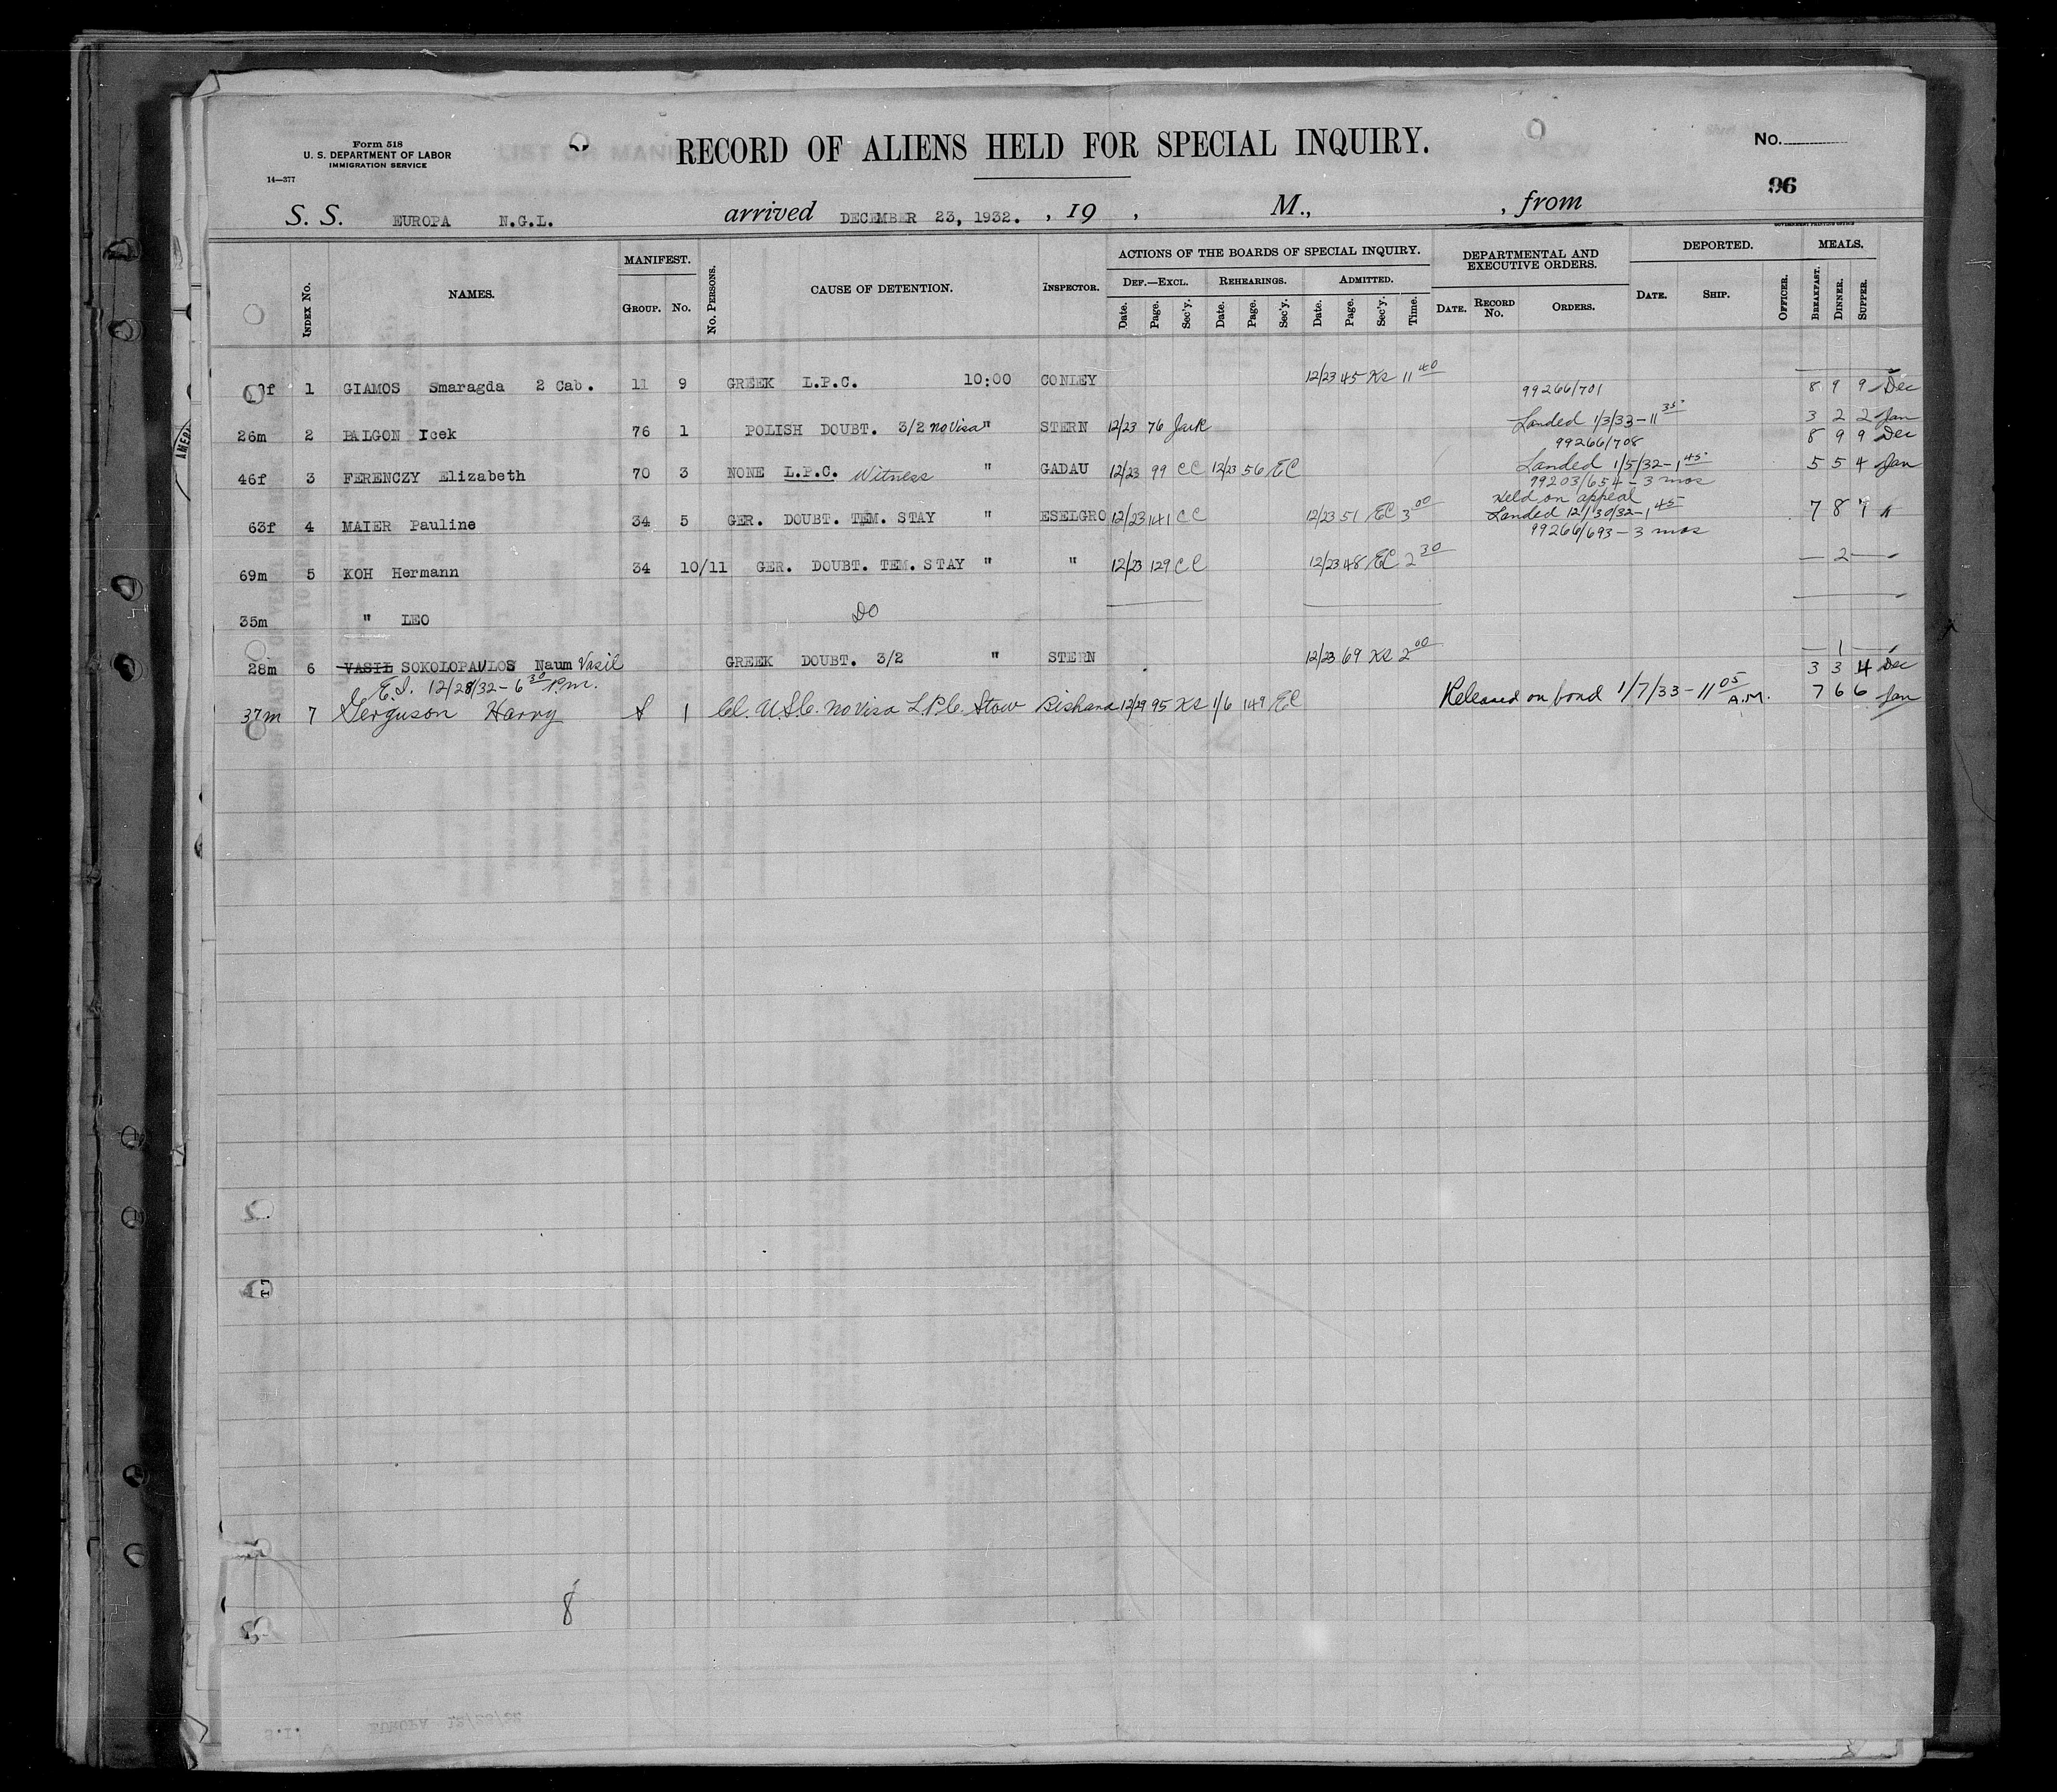 Form 518
U. S. DEPARTMENT OF LABOR
IMMIGRATION SERVICE
14—377
RECORD OF ALIENS HELD FOR SPECIAL INQUIRY.
No.
96
S. S. EUROPA N.G.L. arrived DECEMBER 23, 1932. , 19 , M., , from
GOVERNMENT PRINTING OFFICE
INDEX No. NAMES. MANIFEST. GROUP. No. No. PERSONS. CAUSE OF DETENTION. INSPECTOR. ACTIONS OF THE BOARDS OF SPECIAL INQUIRY. DEPARTMENTAL AND EXECUTIVE ORDERS. DEPORTED. MEALS.
DEF.—EXCL. REHEARINGS. ADMITTED.
Date. Page. Sec'y. Date. Page. Sec'y. Date. Page. Sec'y. Time. DATE. RECORD No. ORDERS. DATE. SHIP. OFFICER. BREAKFAST. DINNER. SUPPER.
f 1 GIAMOS Smaragda 2 Cab. 11 9 GREEK L.P.C. 10:00 CONLEY 12/23 45 KS 11 40
99266/701 8 9 9 Dec
26m 2 PALGON Icek 76 1 POLISH DOUBT. 3/2 no Visa " STERN 12/23 76 Landed 1/3/33-11 35 3 2 2 Jan
99266/708 8 9 9 Dec
46f 3 FERENCZY Elizabeth 70 3 NONE L.P.C. Witness " GADAU 12/23 99 CC 12/23 56 EC Landed 1/5/32-1 45 5 5 4 Jan
99203/654 - 3 mos
Held on appeal
63f 4 MAIER Pauline 34 5 GER. DOUBT. TEM. STAY " ESELGRO 12/23 141 CC 12/23 51 EC 3 00 Landed 12/30/32-1 45 7 8 7
99266/693 - 3 mos
69m 5 KOH Hermann 34 10/11 GER. DOUBT. TEM. STAY " " 12/23 129 CC 12/23 48 EC 2 30 2
35m " LEO DO
28m 6 VASIL SOKOLOPAULOS Naum Vasil GREEK DOUBT. 3/2 " STERN 12/23 69 KS 2 00 1
E.I. 12/28/32 - 6 30 P.m. 3 3 4 Dec
37m 7 Ferguson Harry 1 Cl. U.S.C. no Visa L.P.C. Stow 12/29 95 KS 1/6 149 EC Released on bond 1/7/33-11 05 A.M. 7 6 6 Jan
8